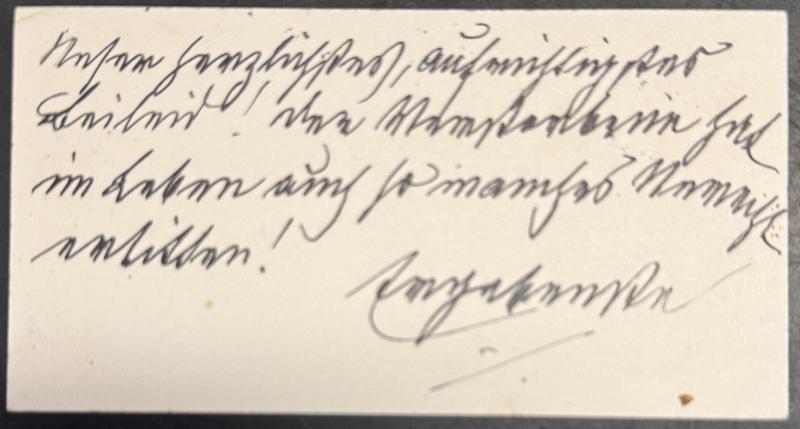 Unser herzlichstes, aufrichtigstes
Beileid! Der Verstorbene hat
im Leben auch so manches Unrecht
erlitten!
Ergebenste